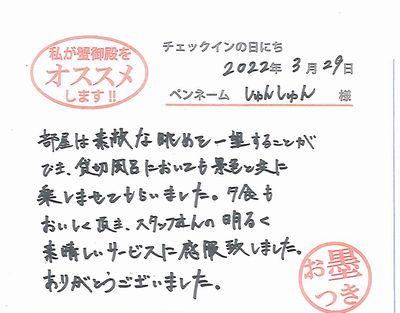 私が蟹御殿を
オススメ
します!!
チェックインの日にち
2022年 3月 29日
ペンネーム しゅんしゅん 様
部屋は素敵な眺めを一望することが
でき、貸切風呂においても景色と共に
楽しませてもらいました。夕食も
おいしく頂き、スタッフさんの明るく
素晴しいサービスに感服致しました。
ありがとうございました。
お墨
つき